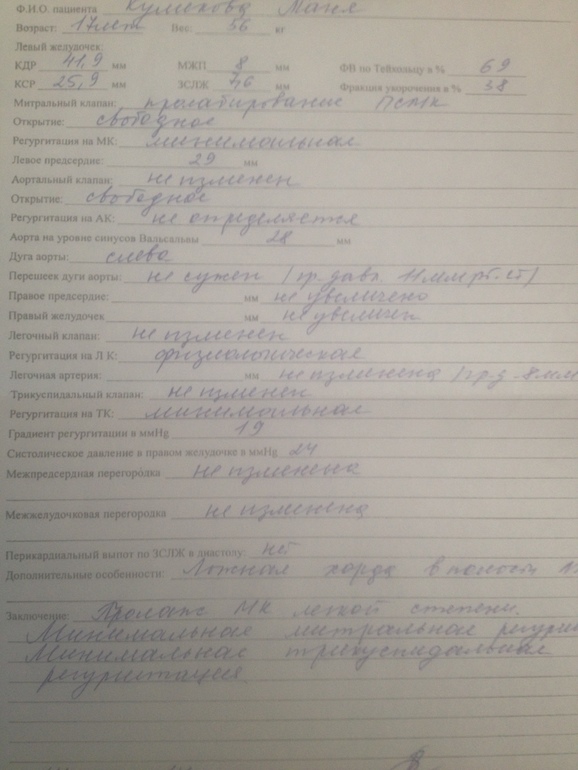 Ф.И.О. пациента Куликова Маня
Возраст: 17 лет Вес: 56 кг
Левый желудочек:
КДР 41,9 мм МЖП 8 мм ФВ по Тейхольцу в % 69
КСР 25,9 мм ЗСЛЖ 7,6 мм Фракция укорочения в % 38
Митральный клапан: пролабирование ПСМК
Открытие: свободное
Регургитация на МК: минимальная
Левое предсердие: 29 мм
Аортальный клапан: не изменен
Открытие: свободное
Регургитация на АК: не определяется
Аорта на уровне синусов Вальсальвы 28 мм
Дуга аорты: слева
Перешеек дуги аорты: не сужен (гр. давл. 11 мм рт. ст)
Правое предсердие: мм не увеличено
Правый желудочек мм не увеличен
Легочный клапан: не изменен
Регургитация на Л К: физиологическая
Легочная артерия: мм не изменена (гр.д - 8 мм
Трикуспидальный клапан: не изменен
Регургитация на ТК: минимальная
Градиент регургитации в ммHg 19
Систолическое давление в правом желудочке в ммHg 24
Межпредсердная перегородка не изменена
Межжелудочковая перегородка не изменена
Перикардиальный выпот по ЗСЛЖ в диастолу: нет
Дополнительные особенности: Ложная хорда в полости
Заключение: Пролапс МК легкой степени.
Минимальная митральная регурги
Минимальная трикуспидальная
регургитация.